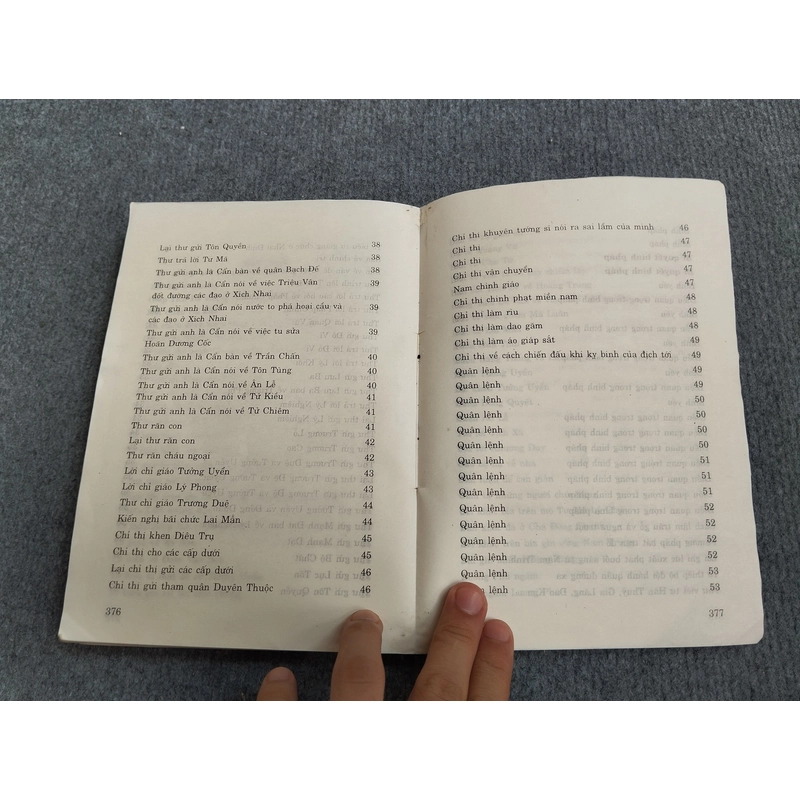 Lại thư gửi Tôn Quyền 38
Thư trả lời Tư Mã 38
Thư gửi anh là Cẩn bàn về quân Bạch Đế 38
Thư gửi anh là Cẩn nói về việc Triệu Vân 39
đốt đường các đạo ở Xích Nhai
Thư gửi anh là Cẩn nói nước to phá hoại cầu và 39
các đạo ở Xích Nhai
Thư gửi anh là Cẩn nói về việc tu sửa 39
Hoàn Dương Cốc
Thư gửi anh là Cẩn bàn về Trần Chấn 40
Thư gửi anh là Cẩn nói về Tôn Tùng 40
Thư gửi anh là Cẩn nói về Ân Lễ 40
Thư gửi anh là Cẩn nói về Tử Kiều 41
Thư gửi anh là Cẩn nói về Tử Chiêm 41
Thư răn con 41
Lại thư răn con 42
Thư răn cháu ngoại 42
Lời chỉ giáo Tưởng Uyển 43
Lời chỉ giáo Lý Phong 43
Thư chỉ giáo Trương Duệ 44
Kiến nghị bãi chức Lai Mẫn 44
Chỉ thị khen Diêu Trụ 45
Chỉ thị cho các cấp dưới 45
Lại chỉ thị gửi các cấp dưới 46
Chỉ thị gửi tham quân Duyên Thuộc 46
376
Chỉ thị khuyên tướng sĩ nói ra sai lầm của mình 46
Chỉ thị 47
Chỉ thị 47
Chỉ thị vận chuyển 47
Nam chinh giáo 47
Chỉ thị chinh phạt miền nam 48
Chỉ thị làm rìu 48
Chỉ thị làm dao găm 48
Chỉ thị làm áo giáp sắt 49
Chỉ thị về cách chiến đấu khi kỵ binh của địch tới 49
Quân lệnh 49
Quân lệnh 49
Quân lệnh 50
Quân lệnh 50
Quân lệnh 50
Quân lệnh 50
Quân lệnh 51
Quân lệnh 51
Quân lệnh 51
Quân lệnh 52
Quân lệnh 52
Quân lệnh 52
Quân lệnh 52
Quân lệnh 53
lệnh 53
377